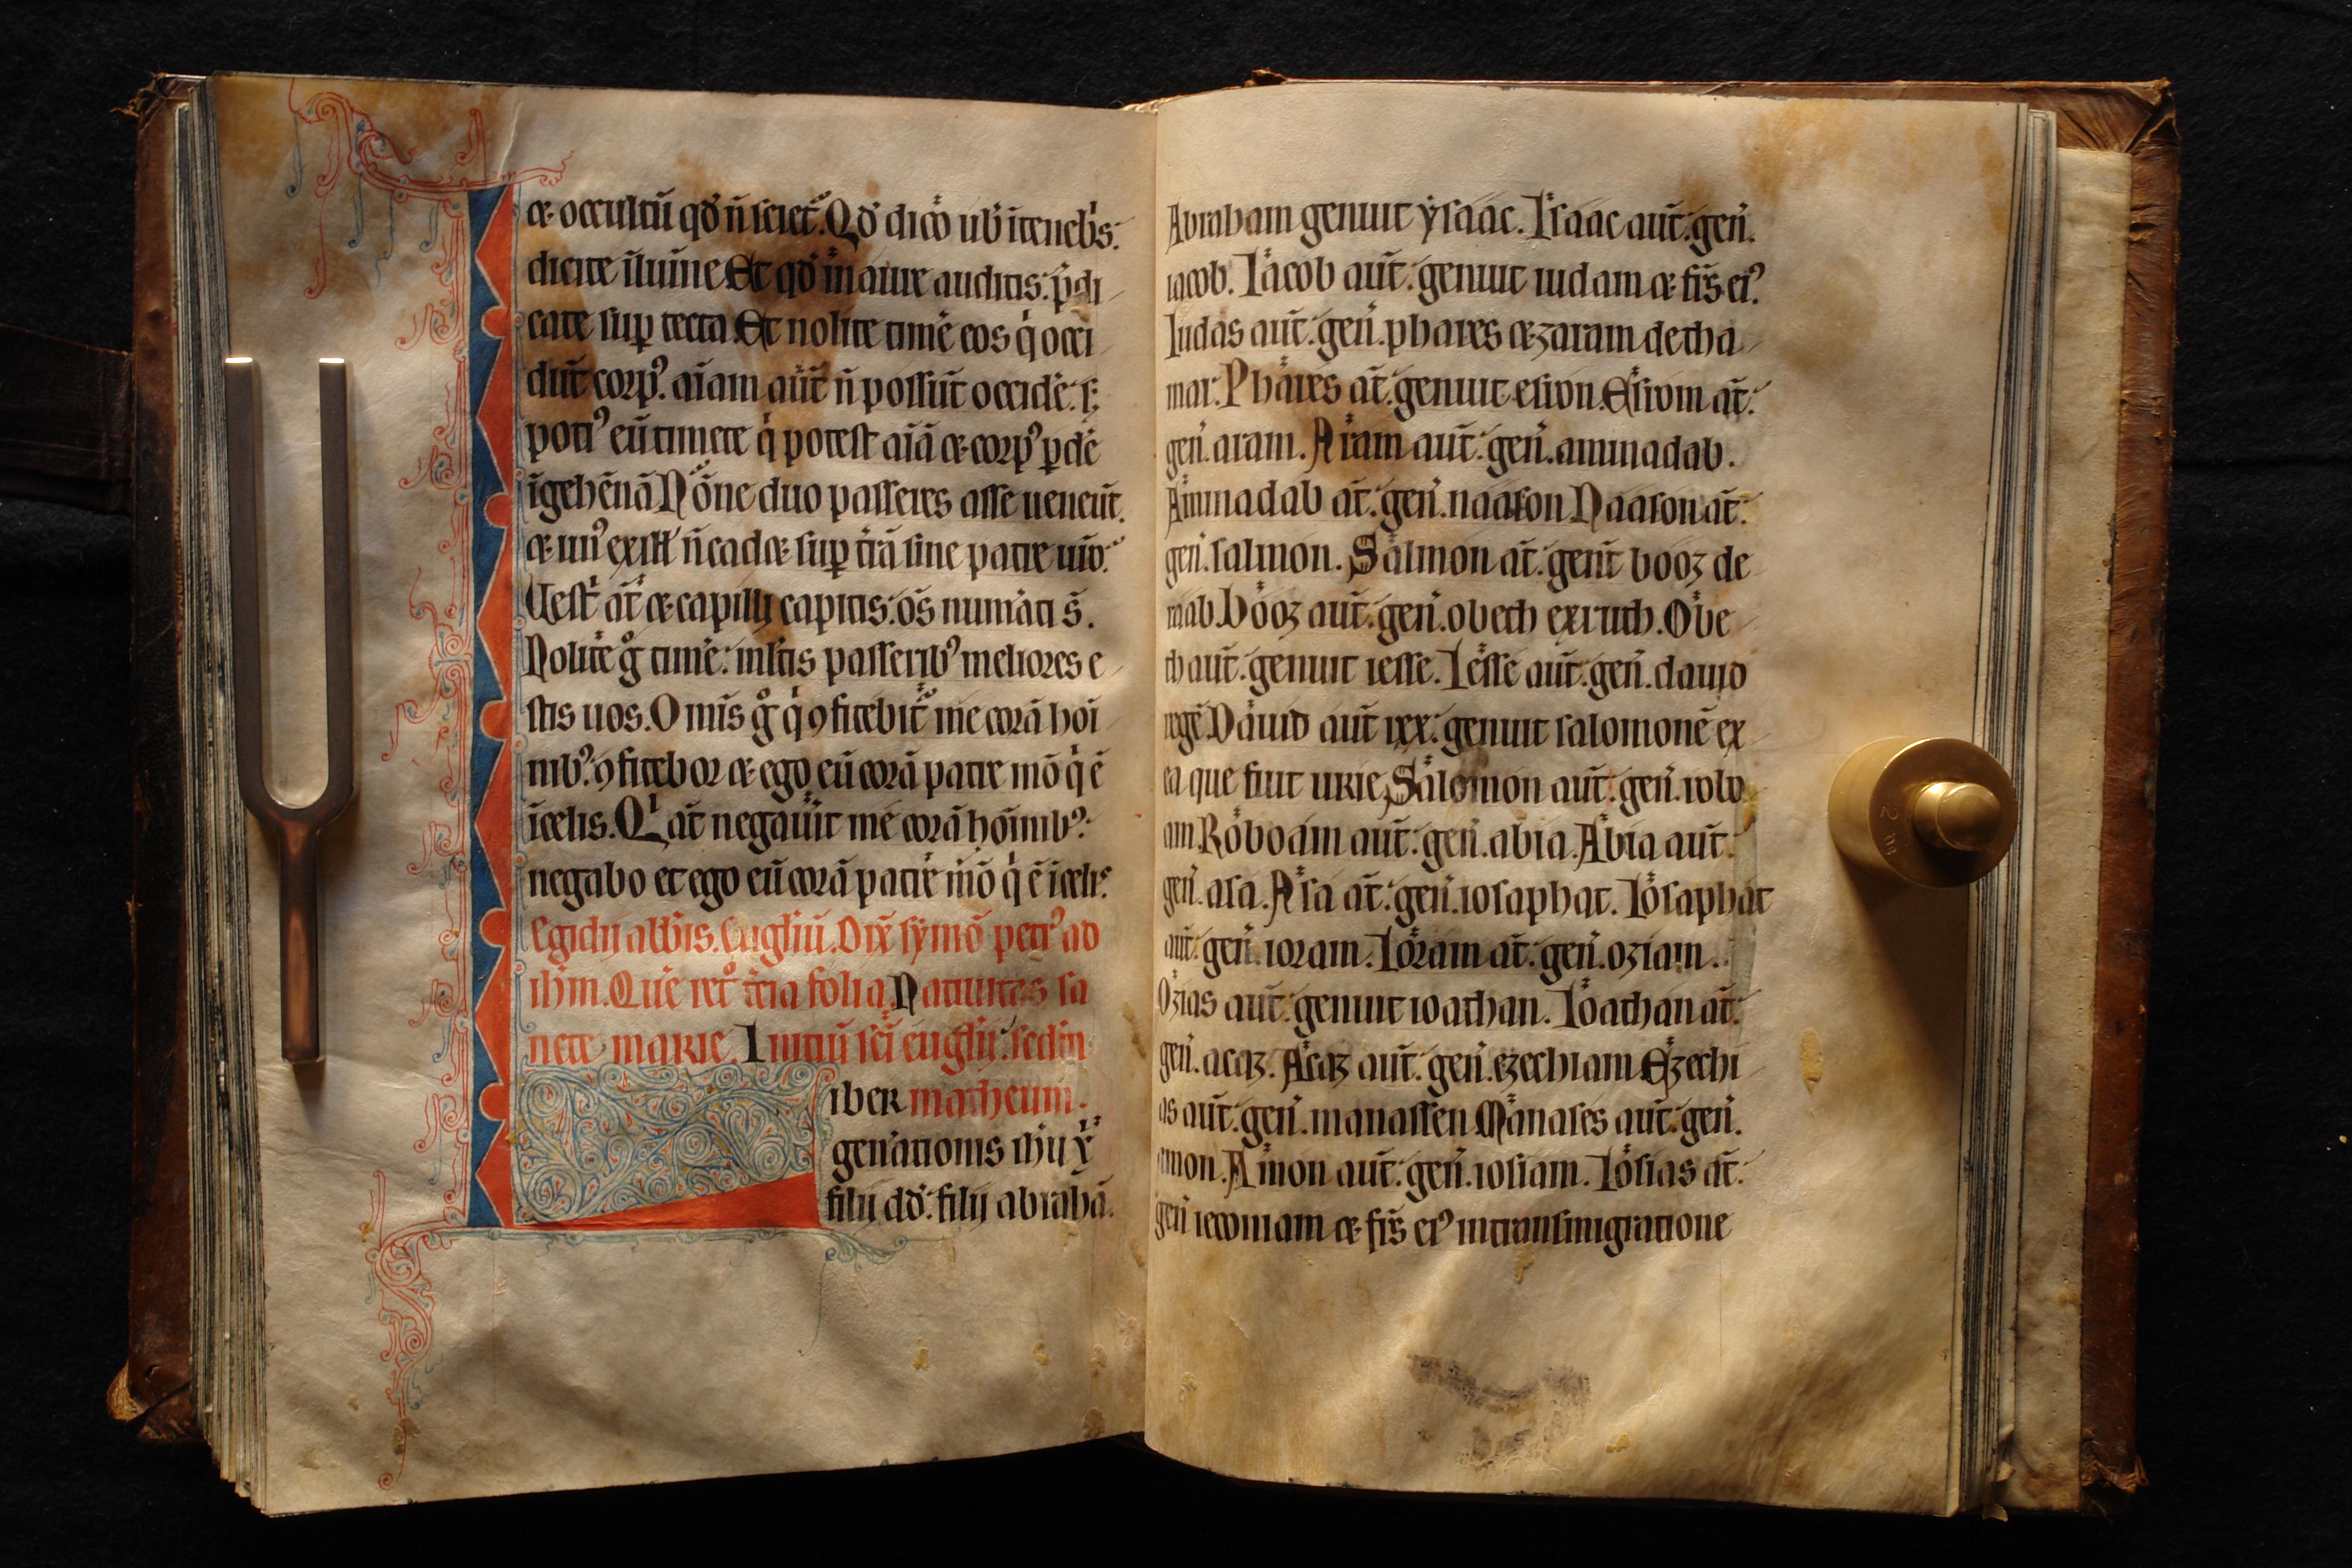 & occultũ qđ ñ sciet᷑. Qđ dico uob̃ ĩtenebs:
dicite ĩlumĩne Et qđ in aure auditis: p̃di
cate sup̱ tecta Et nolite timẽ eos q̇ occi
dũt corpꝰ. aĩam aũt ñ possũt occidẽ: s;
potiꝰ eũ timete q̇ potest aĩã & corpꝰ p̱dẽ
ĩgehẽnã Nõne duo passeres asse ueneũt.
& unꝰ ex ill̃ ñ cad& sup̱ t̃rã sine patre uro.
Uest̃ ãt & capilly capitis: oṡ numãti s̃.
Nolite g̊ timẽ: mltis passeribꝰ meliores e
stis uos. Omĩs g̊ q̇ ꝯfitebit᷑ me corã hoĩ
nibꝰ: ꝯfitebor & ego eũ corã patre mõ q̇ ẽ
ĩcelis. Qı ãt negauĩt me corã hoĩnibꝰ:
negabo et ego eũ corã patre mõ q̇ ẽ ĩcelis.
Egidij abb̃is. Euglĩũ. Dix̃ symõ petrꝰ ad
ihm. Quẽ ret᷑ t̃cia folia Natiuitas sa
ncte marie. Initiũ sc̃i euglĩj: sedm
iber matheum.
gen̾ationis ihu x̃
filij dđ: filij abrahã.
Abraham genuit ysaac. Isaac aũt: geñ.
iacob. Iacob aũt: genuit iudam & fr̃s eiꝰ.
Iudas aũt: geñ. phares & zaram de tha
mar: Phares ãt: genuit esron. Esrom ãt:
geñ. aram. Aram aũt: geñ. aminadab.
Aminadab ãt: geñ. naason Naason ãt:
geñ. salmon. Salmon ãt: genĩt booz de
raab. Booz aũt: geñ. obeth exruth. Obe
th aũt: genuit iesse. Iesse aũt: geñ. dauid
regẽ. Dauid aũt rex: genuit salomonẽ ex
ea que fuit urie. Salomon aũt: geñ. robo
am. Roboam aũt: geñ. abia. Abia aũt:
geñ. asa. Asa ãt: geñ. iosaphat. Iosaphat
aũt: geñ. ioram. Ioram ãt: geñ. oziam.
Ozias aũt: genuit ioathan. Ioathan ãt:
geñ. acaz. Acaz aũt: geñ. ezechiam Ezechi
as aũt: geñ. manassen Manases aũt: geñ.
amon. Amon aũt: geñ. iosiam. Iosias ãt:
geñ ieconiam & fr̃s eiꝰ intransmigratione